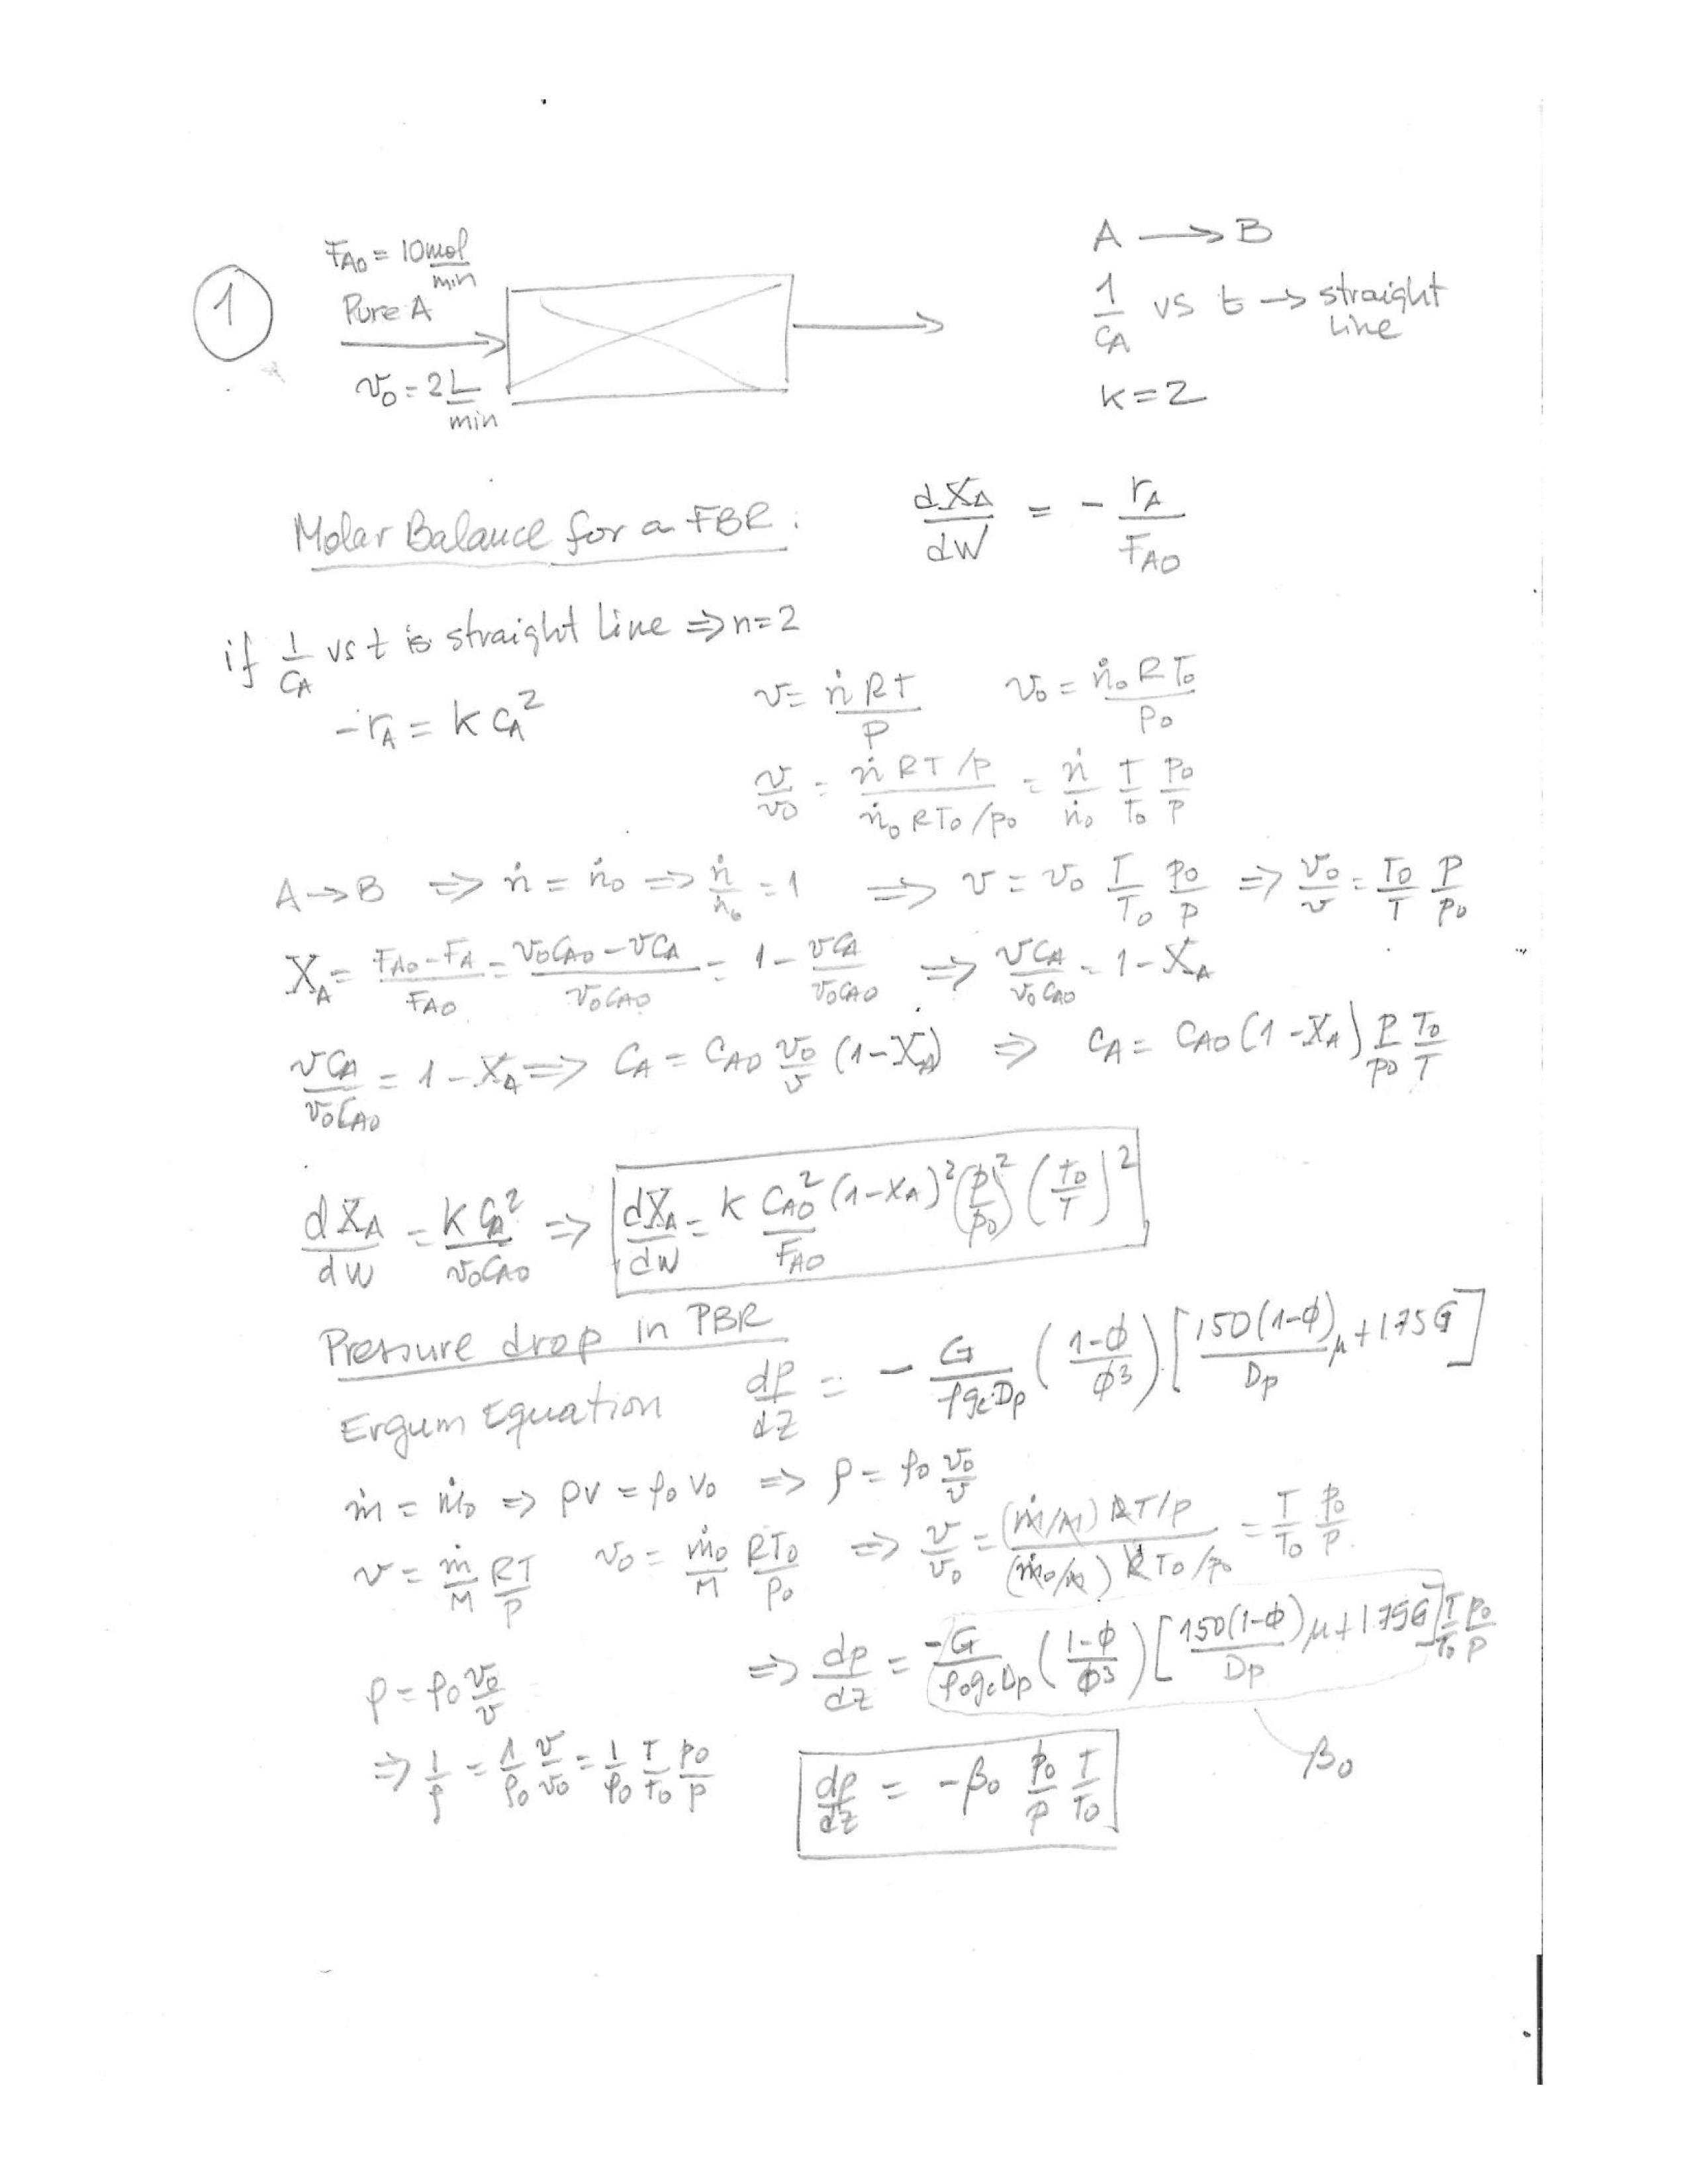 1
F_A0 = 10 mol/min
Pure A
v_0 = 2 L/min
A → B
1/C_A vs t → straight line
k = 2
Molar Balance for a FBR: dX_A/dW = - r_A/F_A0
if 1/C_A vs t is straight line ⇒ n=2
-r_A = k C_A^2
v = ṅRT/P v_0 = ṅ_0RT_0/P_0
v/v_0 = (ṅRT/p)/(ṅ_0RT_0/p_0) = ṅ/ṅ_0 T/T_0 p_0/p
A → B ⇒ ṅ = ṅ_0 ⇒ ṅ/ṅ_0 = 1 ⇒ v = v_0 T/T_0 p_0/p ⇒ v_0/v = T_0/T P/p_0
X_A = (F_A0 - F_A)/F_A0 = (v_0C_A0 - vC_A)/(v_0C_A0) = 1 - vC_A/(v_0C_A0) ⇒ vC_A/(v_0C_A0) = 1 - X_A
vC_A/(v_0C_A0) = 1 - X_A ⇒ C_A = C_A0 v_0/v (1-X_A) ⇒ C_A = C_A0 (1-X_A) P/p_0 T_0/T
dX_A/dW = kC_A^2/(v_0C_A0) ⇒ dX_A/dW = k C_A0^2/F_A0 (1-X_A)^2 (p/p_0)^2 (T_0/T)^2
Pressure drop in PBR
Ergum Equation dp/dz = - G/(ρg_cD_p) ((1-ϕ)/ϕ^3) [150(1-ϕ)/D_p μ + 1.75G]
ṁ = ṁ_0 ⇒ ρv = ρ_0v_0 ⇒ ρ = ρ_0 v_0/v
v = ṁ/M RT/P v_0 = ṁ_0/M RT_0/P_0 ⇒ v/v_0 = ((ṁ/M) RT/p)/((ṁ_0/M) RT_0/p_0) = T/T_0 p_0/p
ρ = ρ_0 v_0/v ⇒ dp/dz = -G/(ρ_0g_cD_p) ((1-ϕ)/ϕ^3) [150(1-ϕ)/D_p μ + 1.75G] T/T_0 p_0/p
⇒ 1/ρ = 1/ρ_0 v/v_0 = 1/ρ_0 T/T_0 p_0/p
dp/dz = -β_0 p_0/p T/T_0
β_0